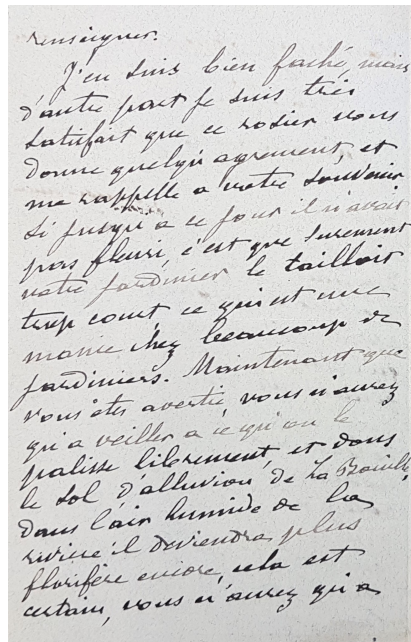 renseigner.
J'en suis bien faché, mais
d'autre part je suis très
satisfait que ce rosier vous
donne quelqu'agrement, et
me rappelle a votre souvenir
Si jusqu'a ce jour il n'avait
pas fleuri, c'est que surement
votre jardinier le taillait
trop court ce qui est une
manie chez beaucoup de
jardiniers. Maintenant que
vous êtes avertie vous n'aurez
qu'a veiller a ce qu'on le
palisse librement et dans
le sol d'alluvion de La Bouille,
dans l'air humide de la
rivière il deviendra plus
florifère encore, cela est
certain, vous n'aurez qu'a